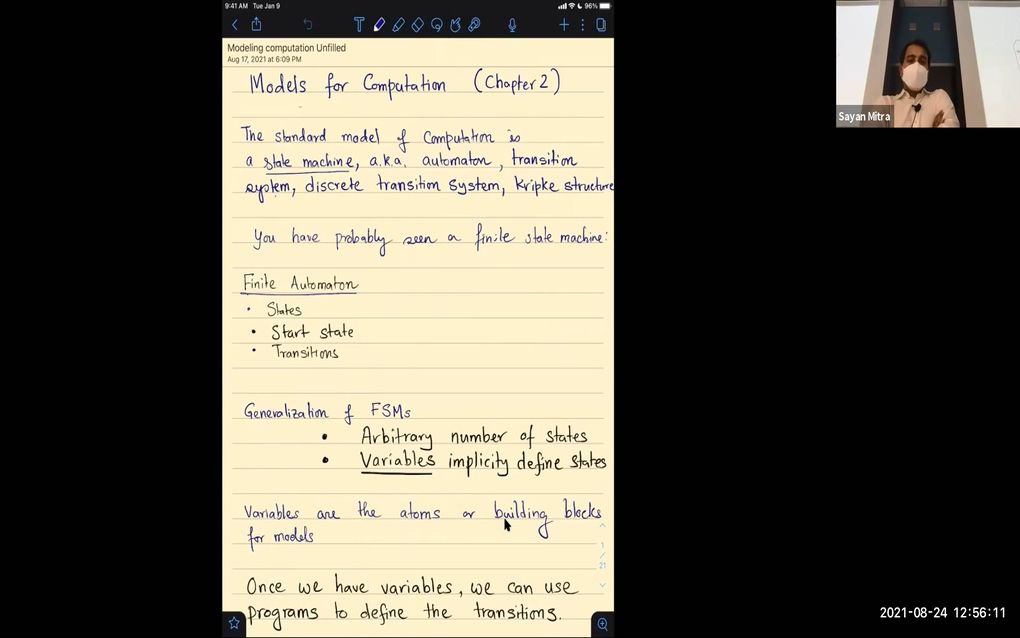 9:41 AM Tue Jan 9
96%
Modeling computation Unfilled
Aug 17, 2021 at 6:09 PM
Models for Computation (Chapter 2)
The standard model of Computation is
a state machine, a.k.a. automaton, transition
system, discrete transition system, Kripke structure
You have probably seen a finite state machine:
Finite Automaton
• States
• Start state
• Transitions
Generalization of FSMs
• Arbitrary number of states
• Variables implicity define states
Variables are the atoms or building blocks
for models
1
/
21
Once we have variables, we can use
programs to define the transitions.
Sayan Mitra
2021-08-24 12:56:11